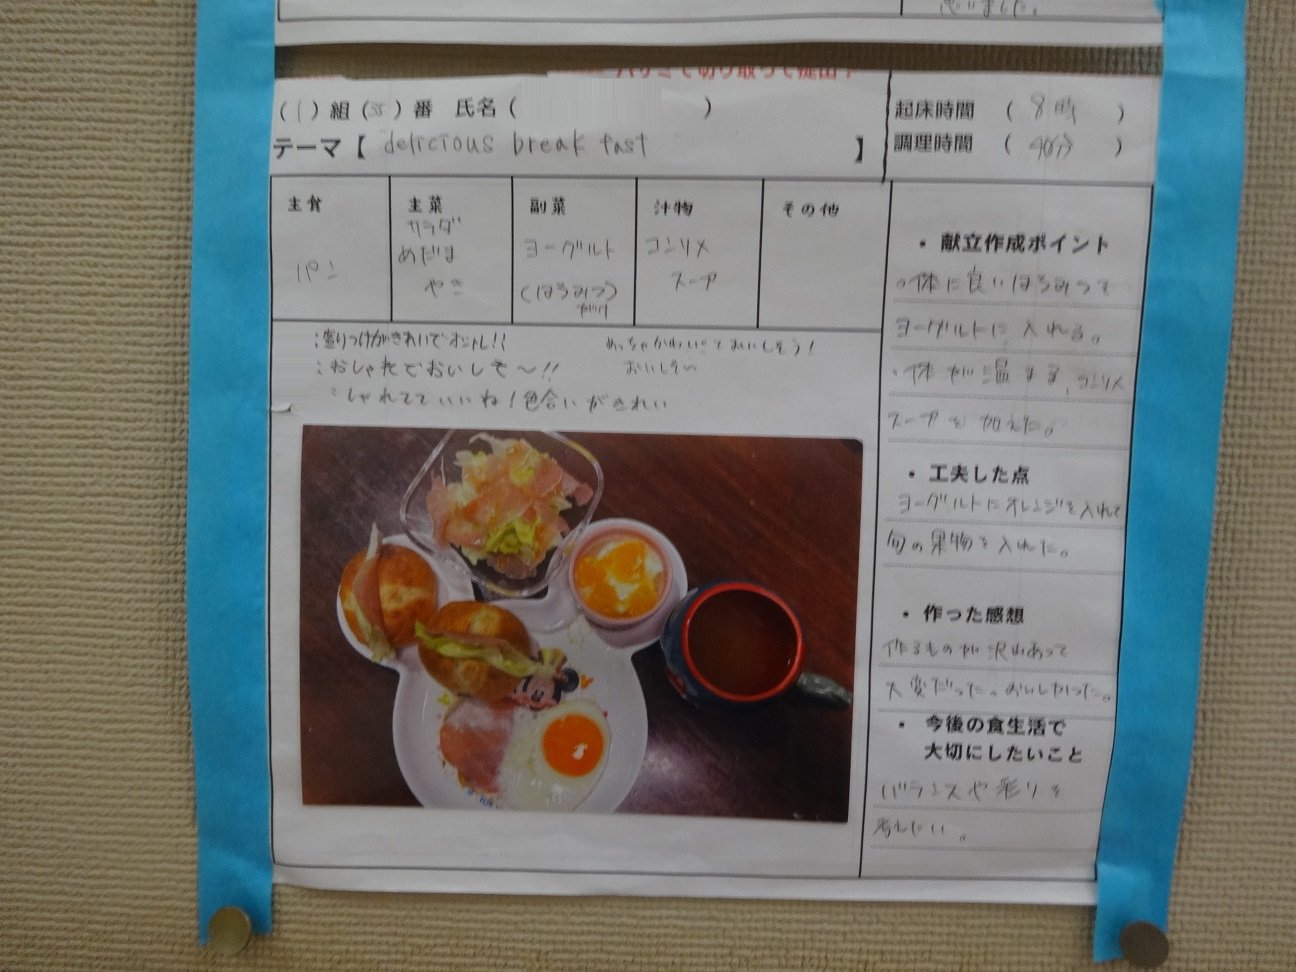 思いました。
ハサミで切り取って提出！
(1)組(35)番 氏名( )
起床時間 ( 8時 )
テーマ【 delicious break fast 】
調理時間 ( 40分 )
主食
パン
主菜
サラダ
めだま
やき
副菜
ヨーグルト
(はちみつ)
がけ
汁物
コンソメ
スープ
その他
:盛りつけがきれいでオシャレ!!
めっちゃかわいくておいしそう!
:おしゃれでおいしそ〜!!
おいしそい
しゃれてていいね!色合いがきれい
・献立作成ポイント
。体に良いはちみつを
ヨーグルトに入れる。
・体が温まる、コンソメ
スープを加えた。
・工夫した点
ヨーグルトにオレンジを入れて
旬の果物を入れた。
・作った感想
作るものが沢山あって
大変だった。おいしかった。
・今後の食生活で
大切にしたいこと
バランスや彩りを
考えたい。